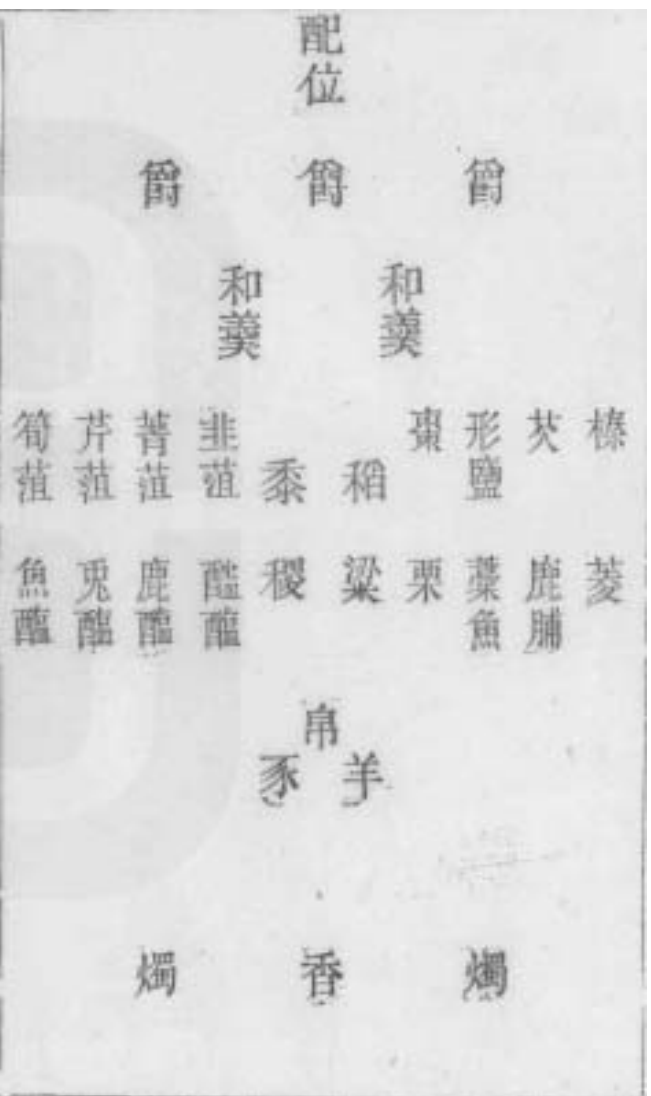 配位
爵　爵　爵
和羹　和羹
榛　芡　形鹽　棗　稻　黍　韭菹　菁菹　芹菹　筍菹
菱　鹿脯　藁魚　栗　粱　稷　醓醢　鹿醢　兎醢　魚醢
帛
羊　豕
燭　香　燭